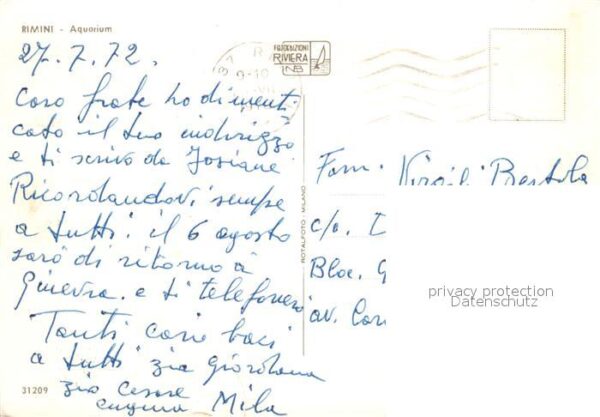 RIMINI - Aquarium
27.7.72.
FOTOEDIZIONI
RIVIERA
Caro frate ho dimenti
cato il tuo indirizzo
e ti scrivo da Josiane
Ricordandovi sempre
a tutti. il 6 agosto
sarò di ritorno a
Ginevra. e ti telefonerò
Tanti cari baci
a tutti zia giordana
zio Cesare
cugina Mila
31209
ROTALFOTO - MILANO
Fam. Virgili Bertola
c/o.
Bloc. G
av.
privacy protection
Datenschutz